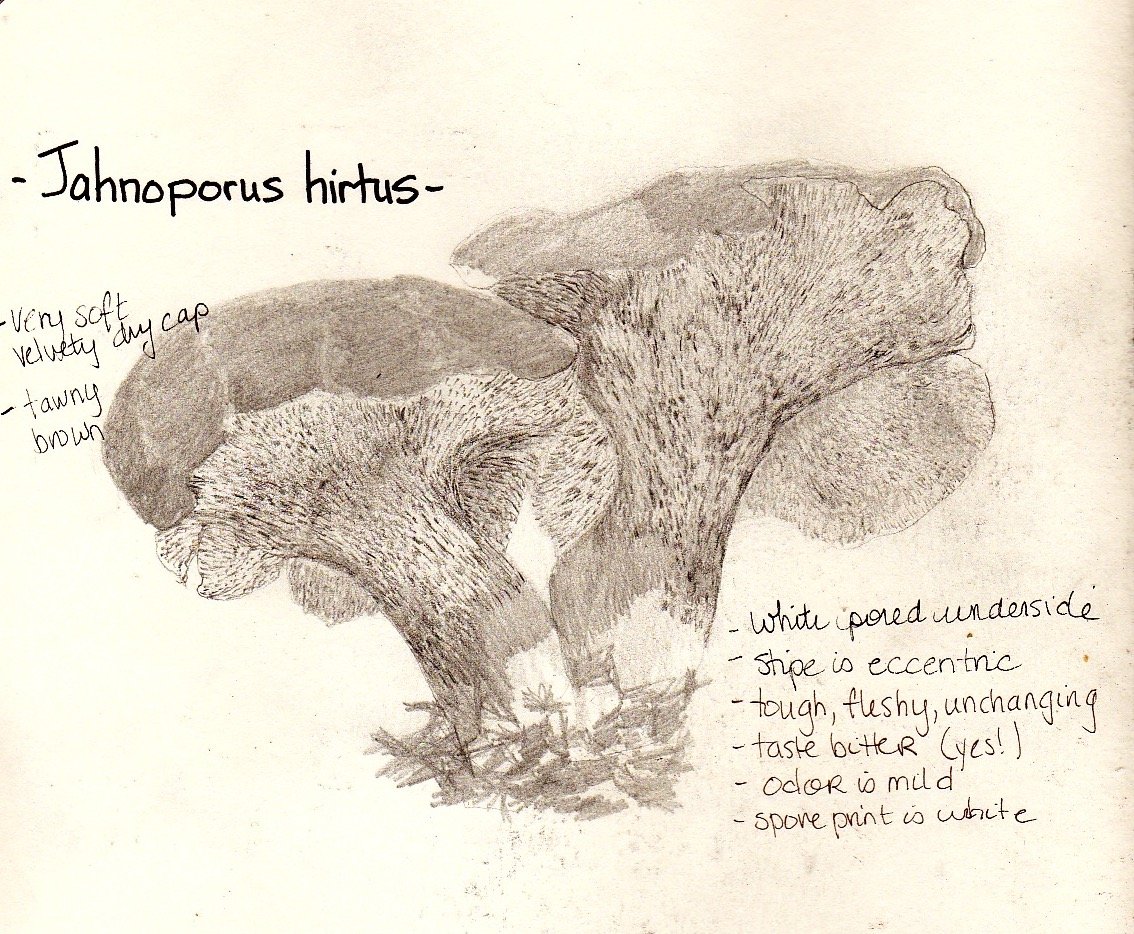 - Jahnoporus hirtus -
- very soft
velvety dry cap
- tawny
brown
- white pored underside
- stipe is eccentric
- tough, fleshy, unchanging
- taste bitter (yes!)
- odor is mild
- spore print is white